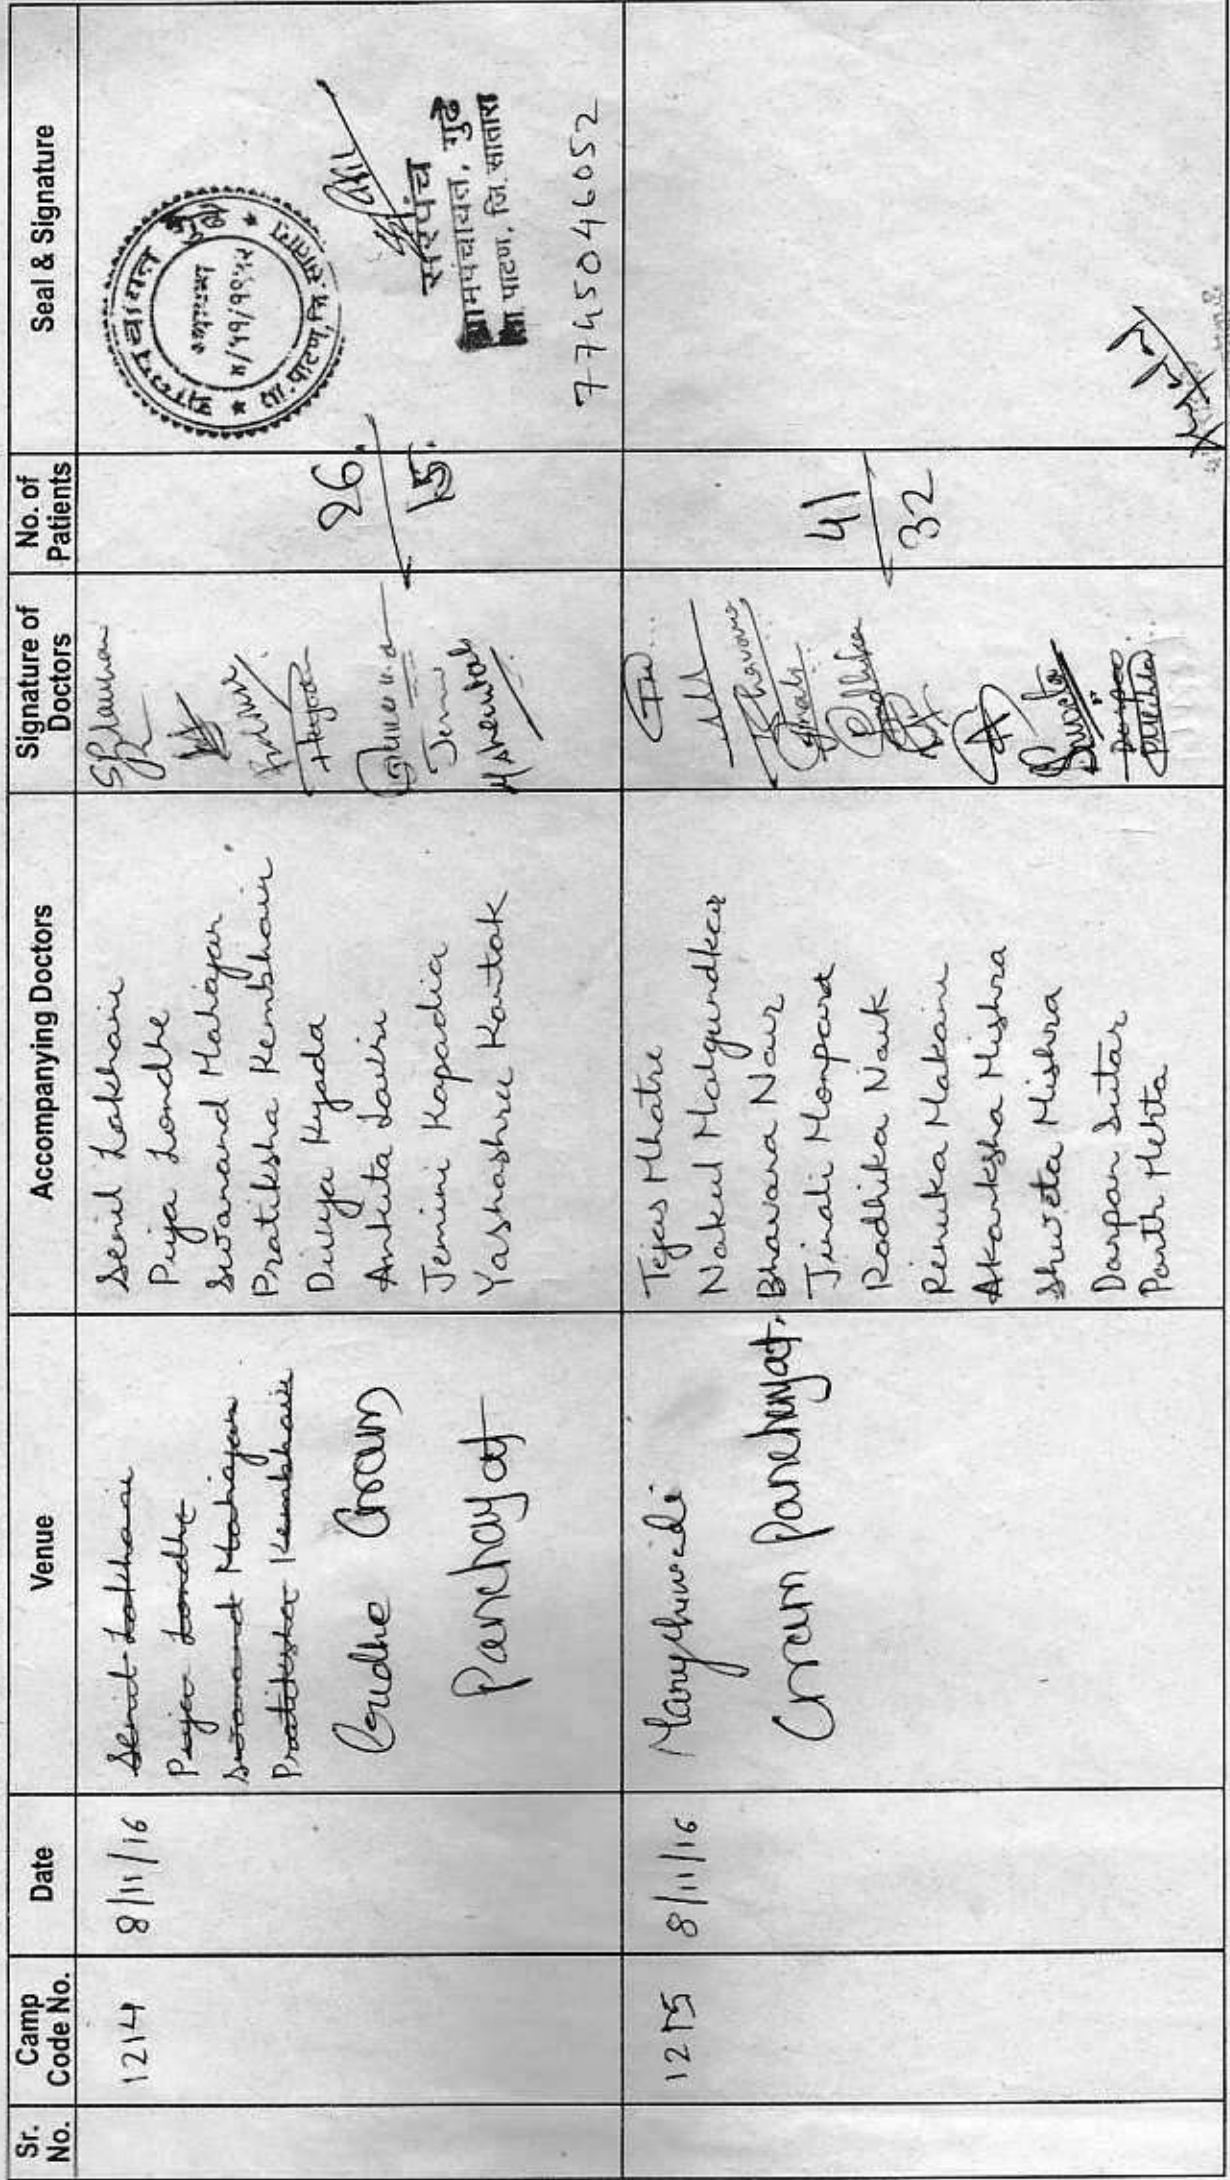 Sr. No.
Camp Code No.
Date
Venue
Accompanying Doctors
Signature of Doctors
No. of Patients
Seal & Signature
1214
8/11/16
Senil Lakhani
Puja Londhe
Swanand Mahajan
Pratiksha Kembhavi
Gudhe Gram
Panchayat
Senil Lakhani
Puja Londhe
Swanand Mahajan
Pratiksha Kembhavi
Divya Kyada
Ankita Lakhi
Jemini Kapadia
Yashashree Kantak
26
15
ग्रामपंचायत गुढे
ता. पाटण, जि. सातारा
सरपंच
ग्रामपंचायत, गुढे
ता. पाटण, जि. सातारा
7745046052
1215
8/11/16
Manyachiwadi
Gram Panchayat.
Tejas Mhatre
Nakul Malgundkar
Bhavana Nair
Jinali Monpara
Radhika Naik
Renuka Makani
Akanksha Mishra
Shweta Mishra
Darpan Sutar
Parth Mehta
Bhavana
Jinali
Radhika
Shweta
41
32